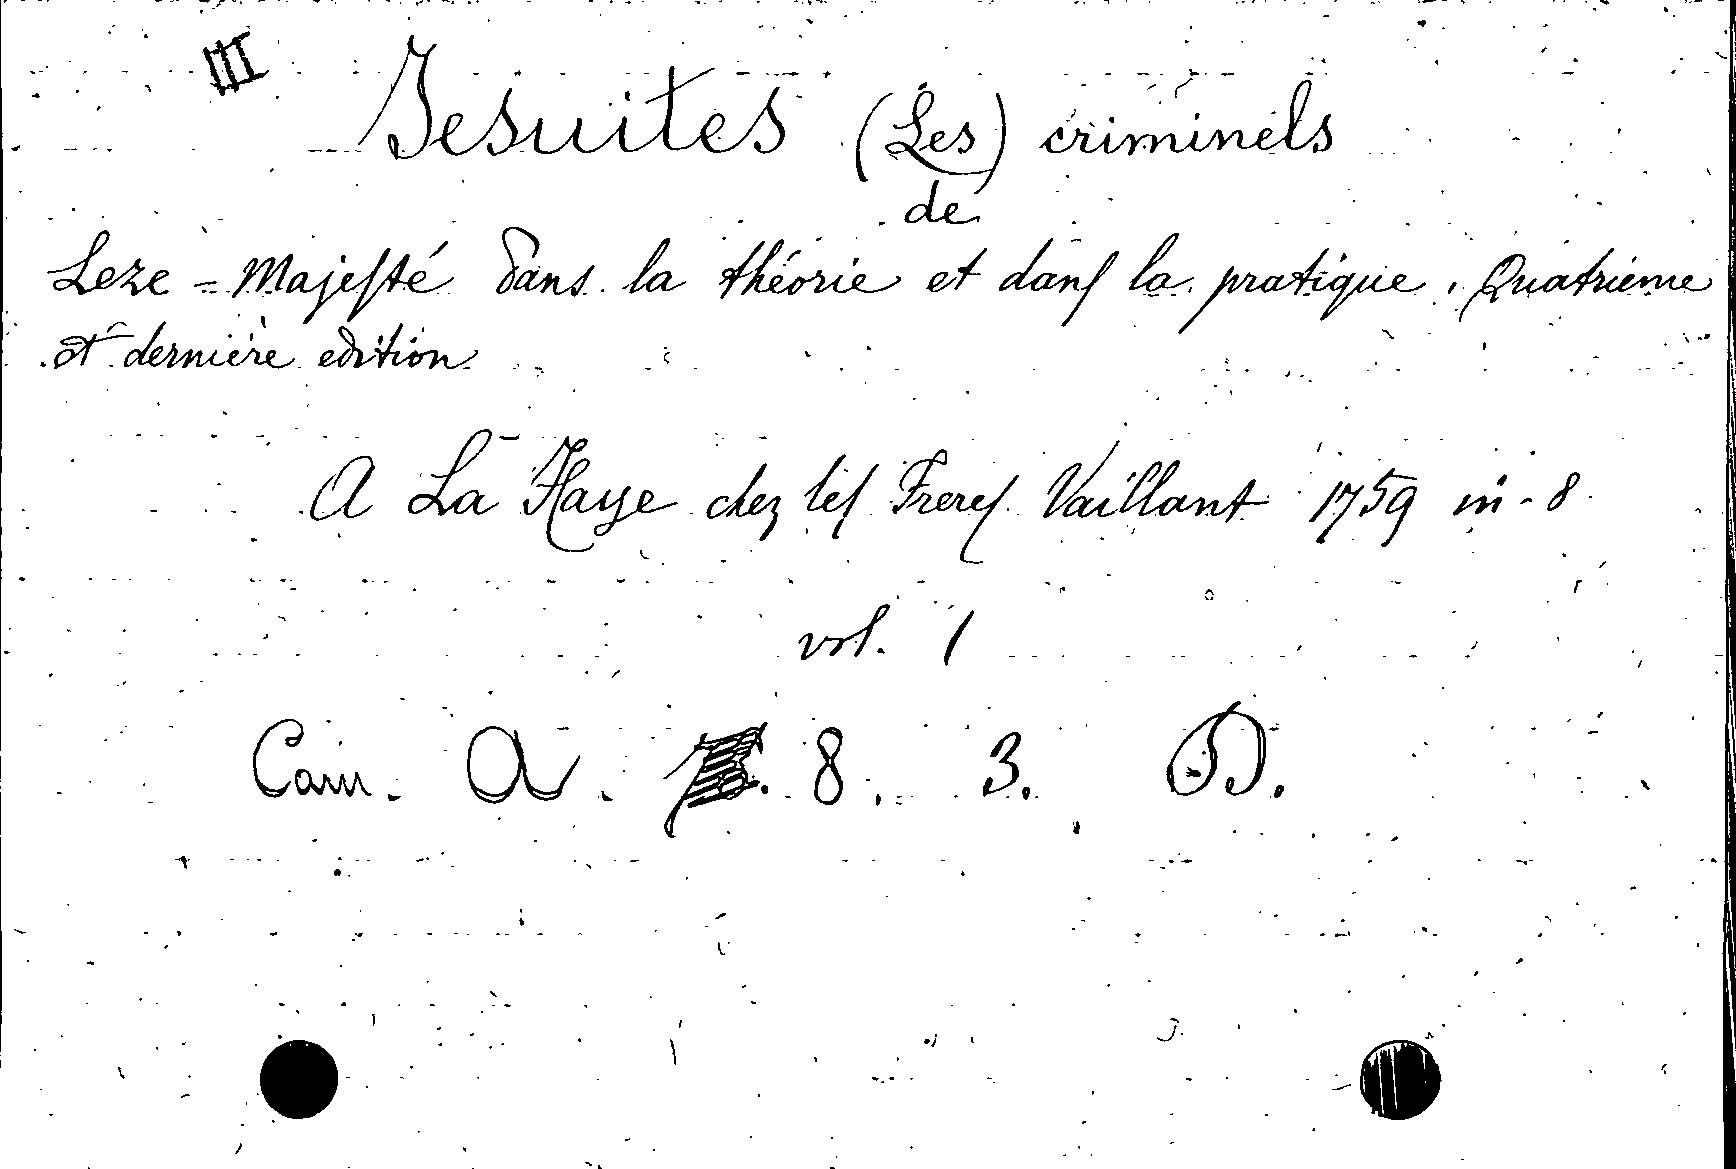 III
Jesuites (Les) criminels
de
Leze=Majeſté dans la théorie et danſ la pratique. Quatrieme
et derniere edition
A La Haye chez leſ Frereſ Vaillant 1759 in-8
vol. 1
Cam. A. 8. 3. D.